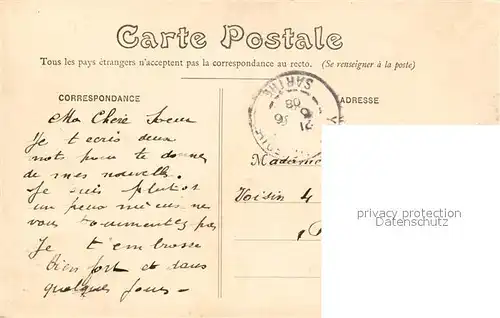 Carte Postale
Tous les pays étrangers n'acceptent pas la correspondance au recto. (Se renseigner à la poste)
CORRESPONDANCE
ADRESSE
SARTHE
Ma Chère Soeur
Je t ecris deux
mots pour te donner
de mes nouvelle.
Je suis plutot
un peux mieus ne
vous tourmentez pas
Je t'embrasse
bien fort et dans
quelques jours -
Voisin 4
privacy protection
Datenschutz